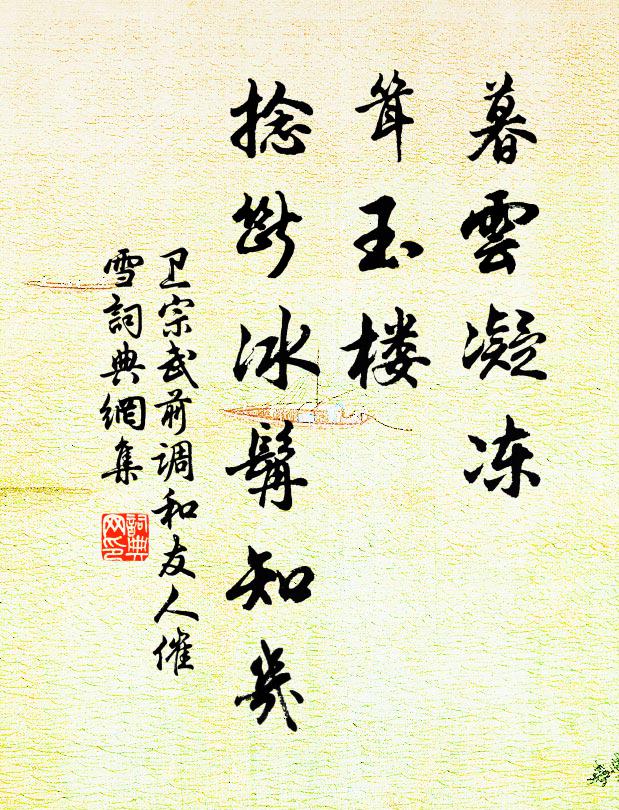 暮雲凝冻
耸玉楼
捻断冰髯知幾
卫宗武前调和友人催
雪詞典網集
詞典
网印